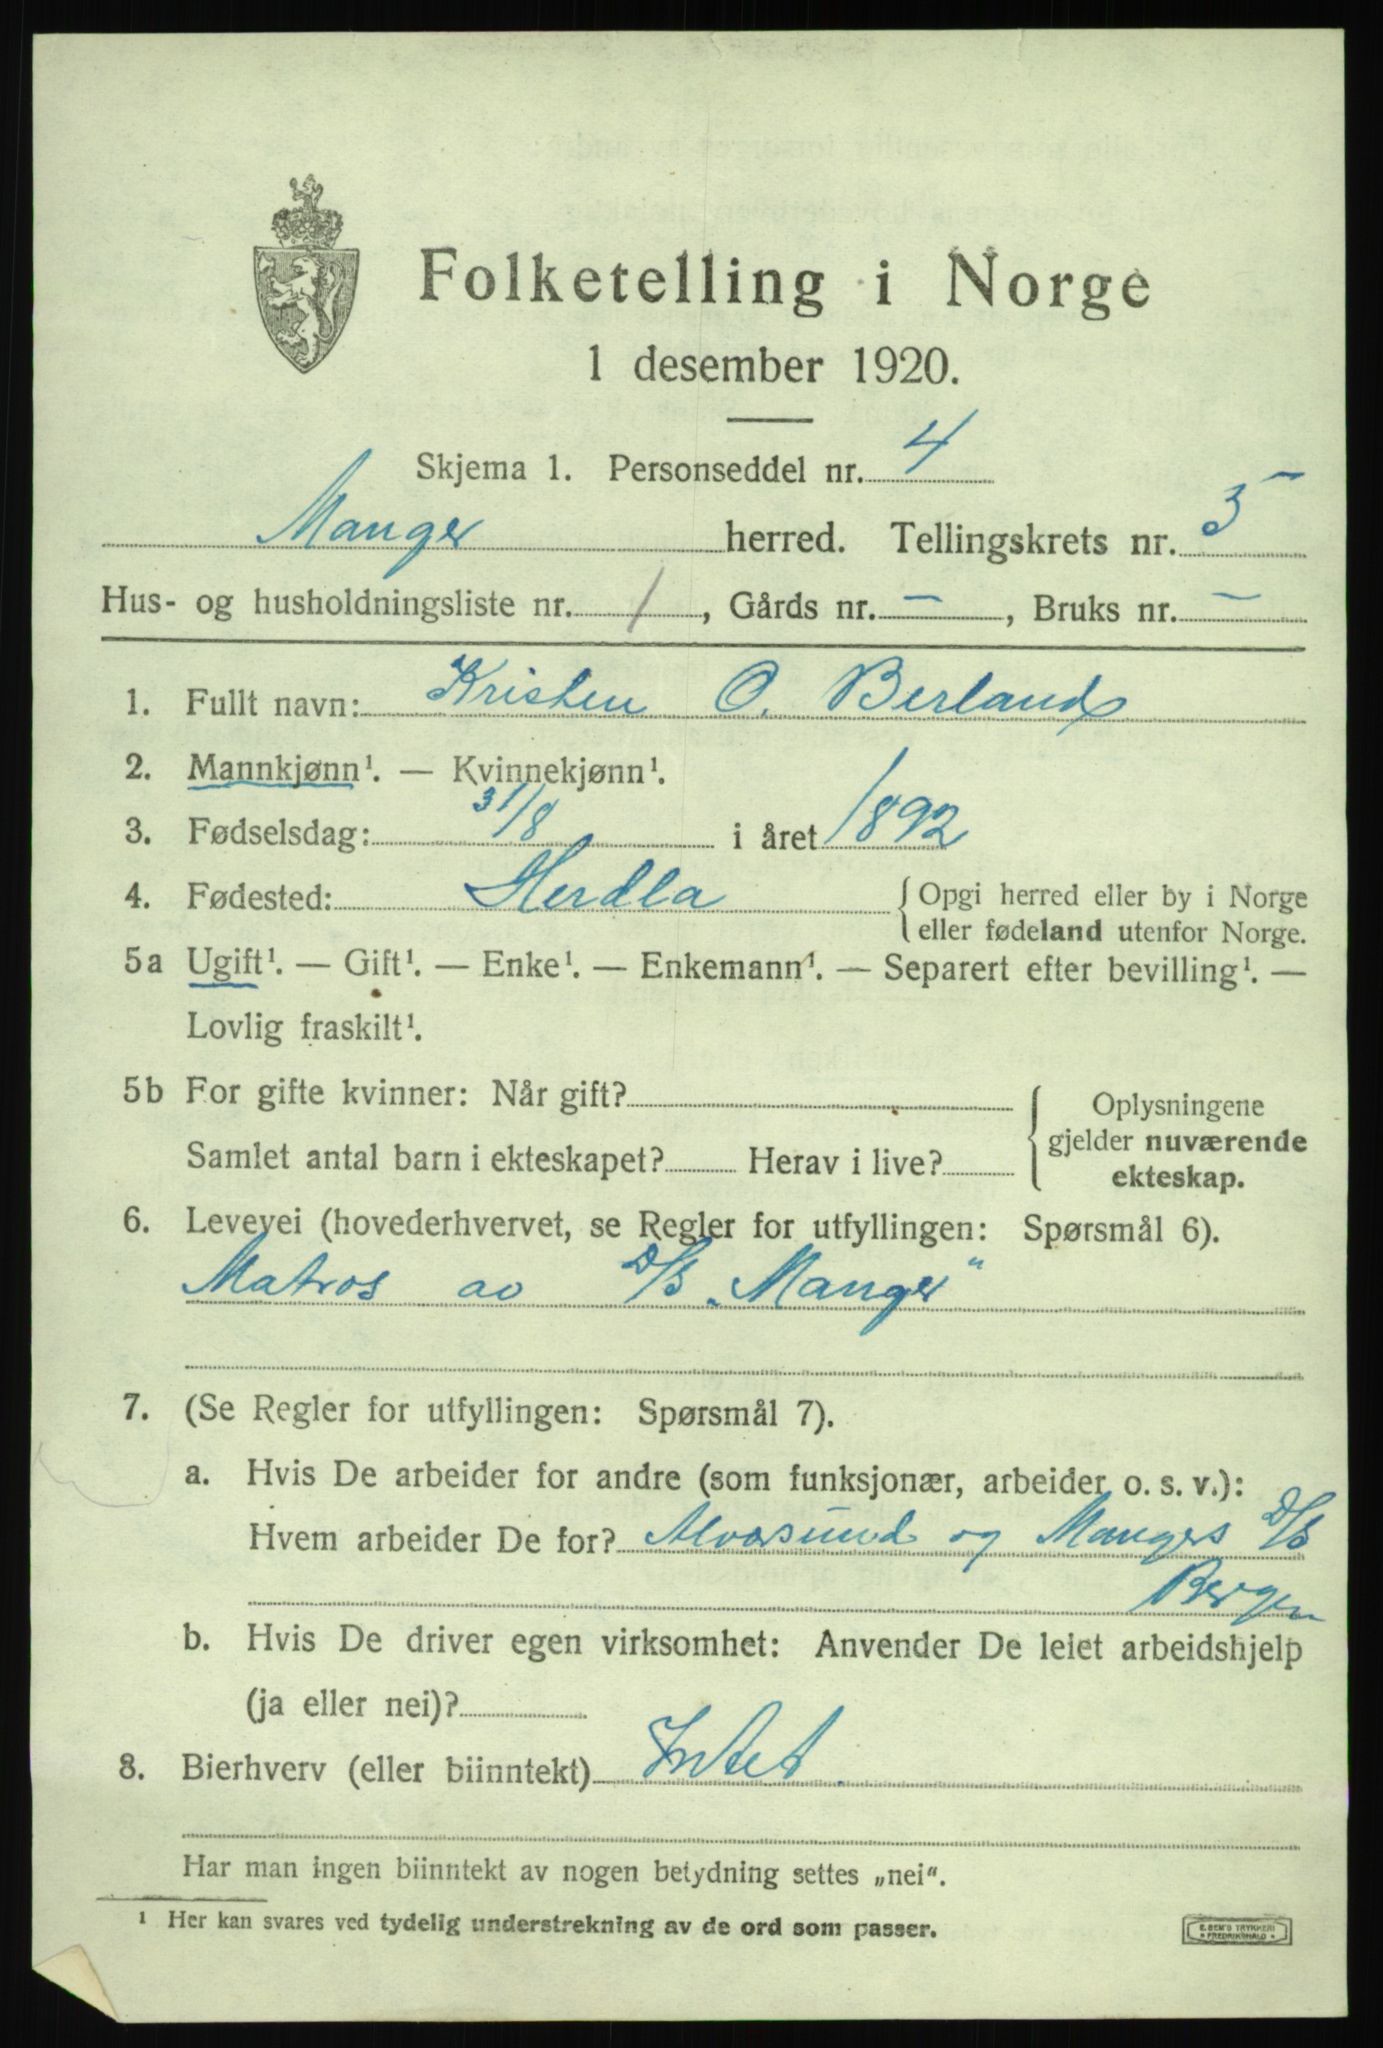 Folketelling i Norge
1 desember 1920.
Skjema 1. Personseddel nr. 4
Manger herred. Tellingskrets nr. 5
Hus- og husholdningsliste nr. 1, Gårds nr. —, Bruks nr. —
1. Fullt navn: Kristen O. Berland
2. Mannkjønn¹. — Kvinnekjønn¹.
3. Fødselsdag: 31/8 i året 1892
4. Fødested: Herdla {Opgi herred eller by i Norge
eller fødeland utenfor Norge.
5a Ugift¹. — Gift¹. — Enke¹. — Enkemann¹. — Separert efter bevilling¹. —
Lovlig fraskilt¹.
5b For gifte kvinner: Når gift? Oplysningene
gjelder nuværende
Samlet antal barn i ekteskapet? Herav i live?
ekteskap.
6. Levevei (hovederhvervet, se Regler for utfyllingen: Spørsmål 6).
Matros av D/S „Manger"
7. (Se Regler for utfyllingen: Spørsmål 7).
a. Hvis De arbeider for andre (som funksjonær, arbeider o. s. v.):
Hvem arbeider De for? Alversund og Mangers D/S
Bergen
b. Hvis De driver egen virksomhet: Anvender De leiet arbeidshjelp
(ja eller nei)?
8. Bierhverv (eller biinntekt) Intet.
Har man ingen biinntekt av nogen betydning settes „nei".
¹ Her kan svares ved tydelig understrekning av de ord som passer.
E. SEM'S TRYKKERI
FREDRIKSHALD